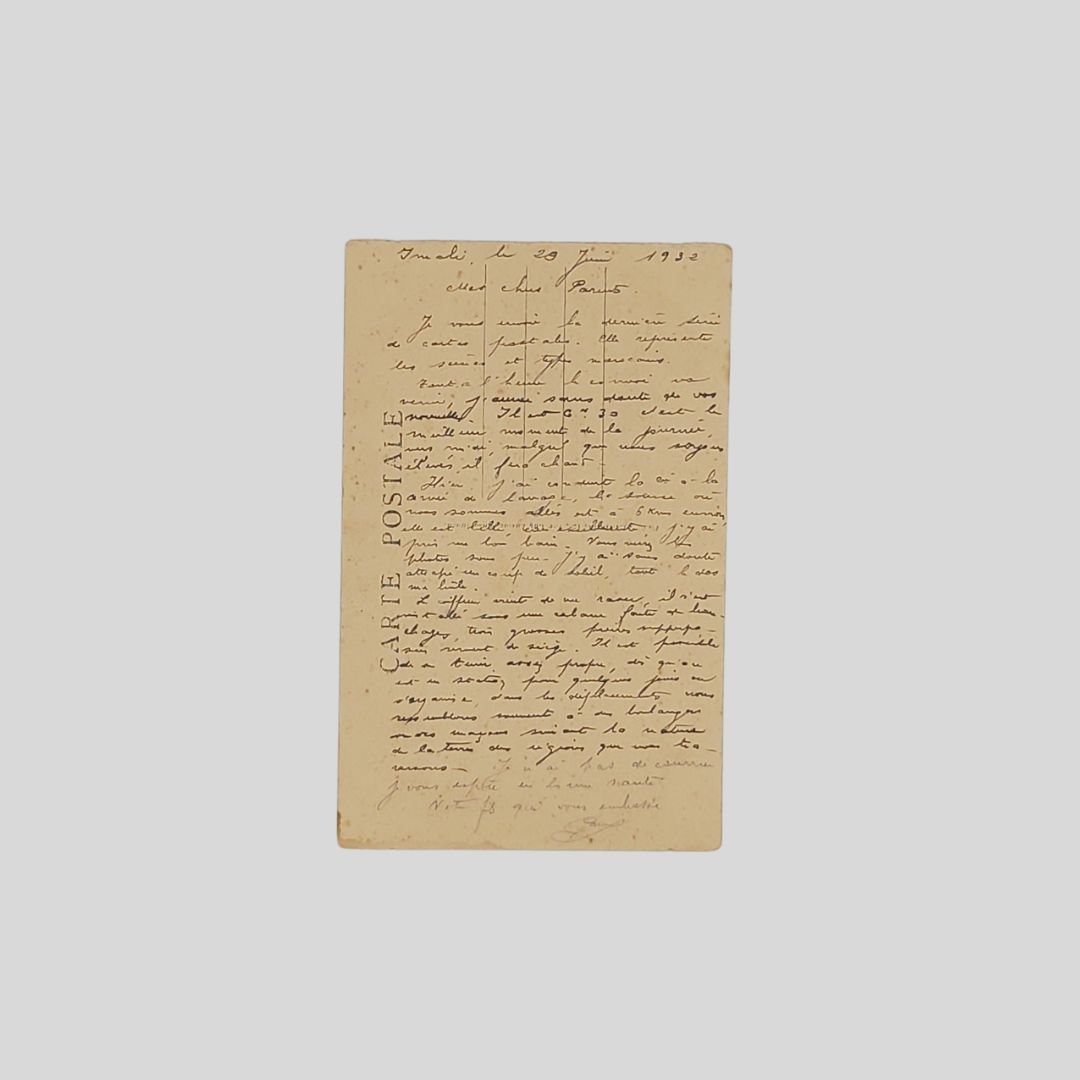 Imali, le 29 Juin 1932
Mes chers Parents.
Je vous envoie la dernière série
de cartes postales. Elle représente
les scènes et types marocains.
Tout à l'heure le convoi va
venir, j'aurai sans doute de vos
nouvelles. Il est 6h 30 c'est le
meilleur moment de la journée,
vers midi, malgré que nous soyons
élevés, il fera chaud.
Hier j'ai conduit la Cie à la
corvée de lavage, la source où
nous sommes allés est à 6 Kms environ,
elle est belle, eau excellente, j'y ai
pris un bon bain. Vous verrez les
photos sous peu. J'y ai sans doute
attrapé un coup de soleil, tout le dos
me brûle.
Le coiffeur vient de me raser, il s'est
installé sous une cabane faite de bran-
chages, trois grosses pierres superpo-
sées servent de siège. Il est possible
de se tenir assez propre, dès qu'on
est en station pour quelques jours on
s'organise, dans les déplacements nous
ressemblons souvent à des boulangers
ou des maçons suivant la nature
de la terre des régions que nous tra-
versons — Je n'ai pas de courrier
je vous espère en bonne santé
Votre fils qui vous embrasse
CARTE POSTALE